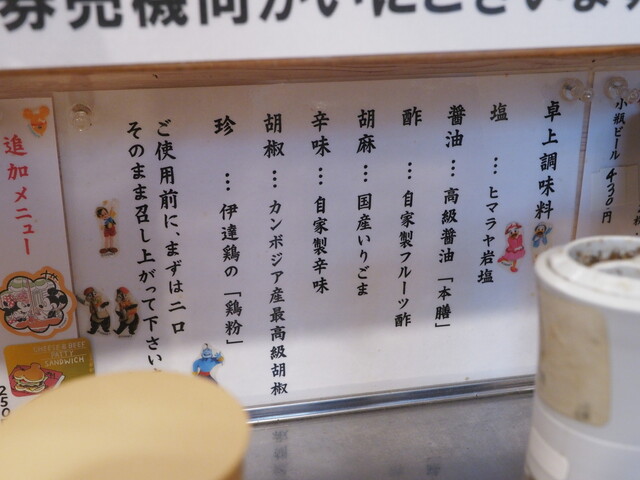 券売機向かいにございます
卓上調味料
塩…ヒマラヤ岩塩
醤油…高級醤油「本膳」
酢…自家製フルーツ酢
胡麻…国産いりごま
辛味…自家製辛味
胡椒…カンボジア産最高級胡椒
珍…伊達鶏の「鶏粉」
ご使用前に、まずは二口
そのまま召し上がって下さい
小瓶ビール 430円
追加メニュー
CHEESE & BEEF
PATTY
SANDWICH
250